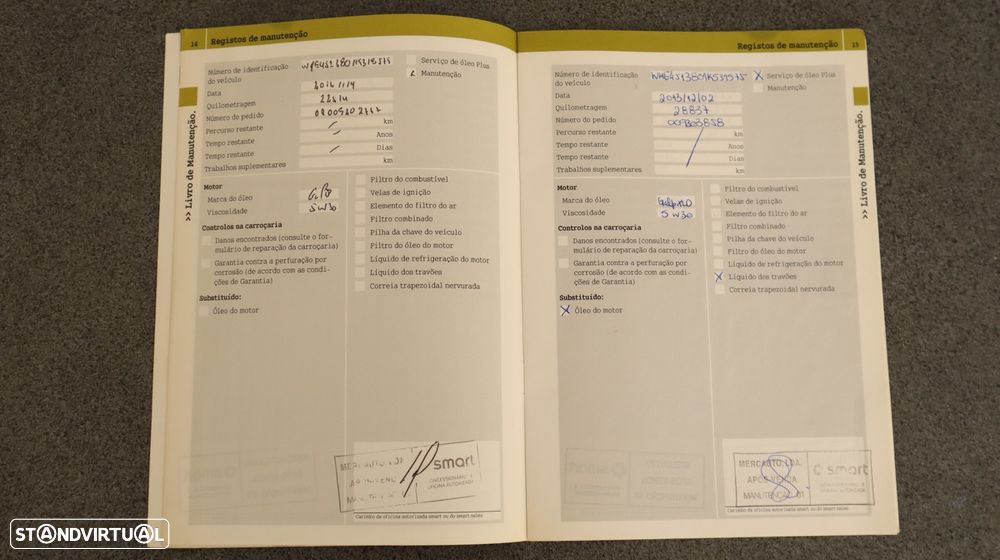 14 Registos de manutenção
Número de identificação
do veículo
Data
Quilometragem
Número do pedido
Percurso restante
km
Tempo restante
Anos
Tempo restante
Dias
Trabalhos suplementares
km
Serviço de óleo Plus
Manutenção
>> Livro de Manutenção.
Motor
Marca do óleo
Viscosidade 5W30
Controlos na carroçaria
Danos encontrados (consulte o for-
mulário de reparação da carroçaria)
Garantia contra a perfuração por
corrosão (de acordo com as condi-
ções de Garantia)
Substituído:
Óleo do motor
Filtro do combustível
Velas de ignição
Elemento do filtro do ar
Filtro combinado
Pilha da chave do veículo
Filtro do óleo do motor
Líquido de refrigeração do motor
Líquido dos travões
Correia trapezoidal nervurada
smart
CONCESSIONÁRIO E
OFICINA AUTORIZADA
Carimbo da oficina autorizada smart ou do smart sales
Registos de manutenção 15
Número de identificação
do veículo
Data 2013/12/02
Quilometragem 28837
Número do pedido
Percurso restante
km
Tempo restante
Anos
Tempo restante
Dias
Trabalhos suplementares
km
X Serviço de óleo Plus
Manutenção
>> Livro de Manutenção.
Motor
Marca do óleo
Viscosidade 5W30
Controlos na carroçaria
Danos encontrados (consulte o for-
mulário de reparação da carroçaria)
Garantia contra a perfuração por
corrosão (de acordo com as condi-
ções de Garantia)
Substituído:
X Óleo do motor
Filtro do combustível
Velas de ignição
Elemento do filtro do ar
Filtro combinado
Pilha da chave do veículo
Filtro do óleo do motor
Líquido de refrigeração do motor
X Líquido dos travões
Correia trapezoidal nervurada
MERCAUTO, LDA.
APÓS VENDA
MANUTENÇÃO 01
smart
Carimbo da oficina autorizada smart ou do smart sales
STANDVIRTUAL